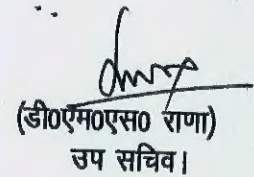 (डी0एम0एस0 राणा)
उप सचिव।